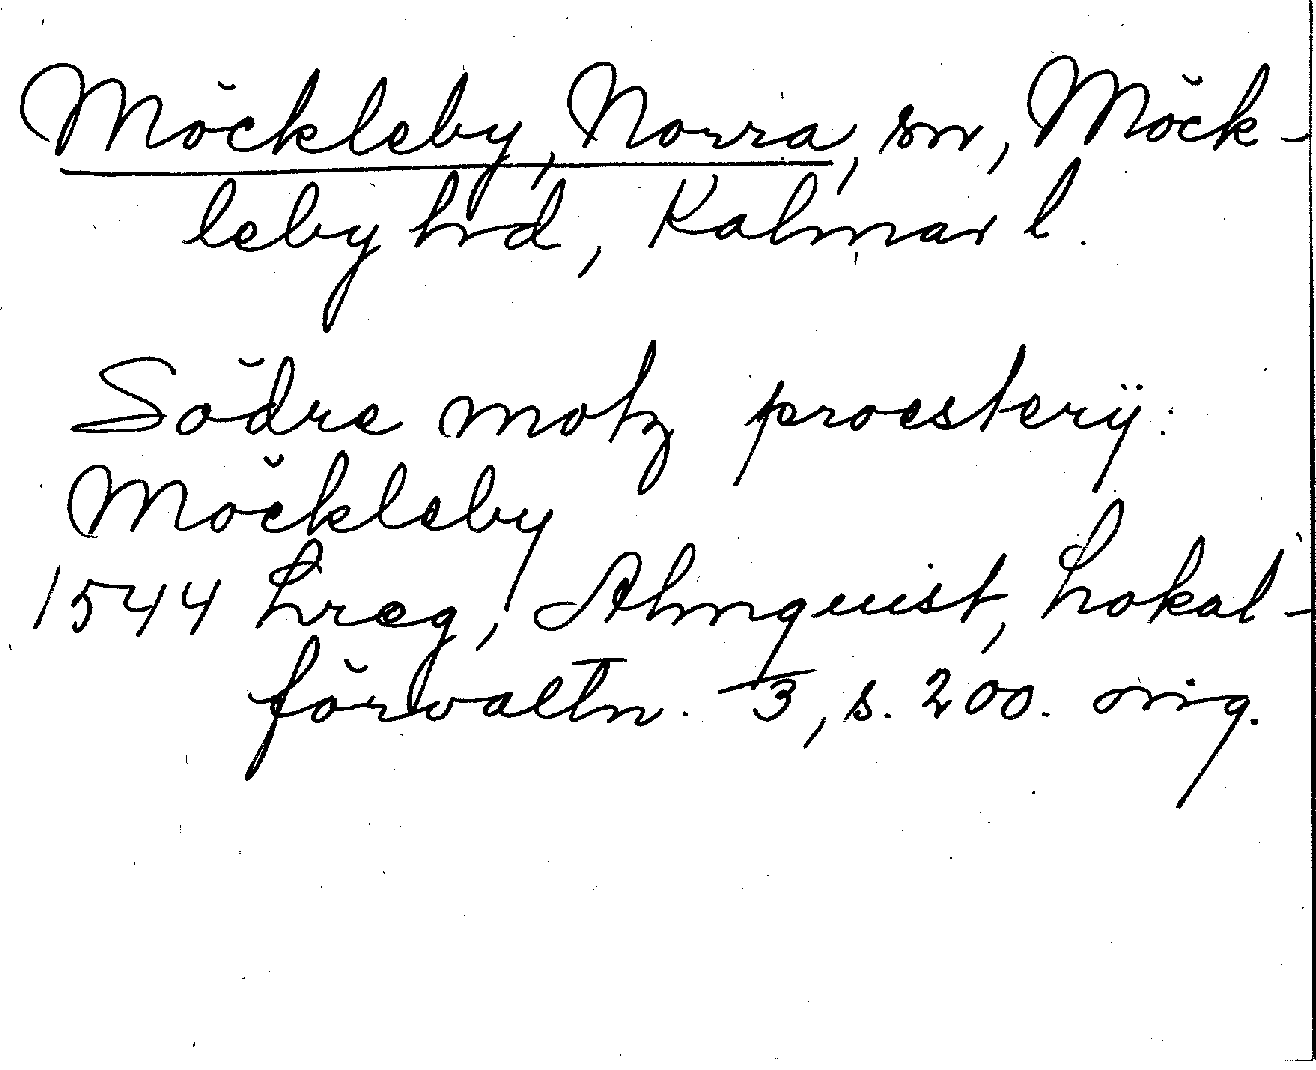 Möckleby, Norra, sn, Möck-
leby hd, Kalmar l.
Södre motz proesterÿ:
Möckleby
1544 Lreg, Almquist, Lokal-
förvaltn. 3, s. 200. orig.